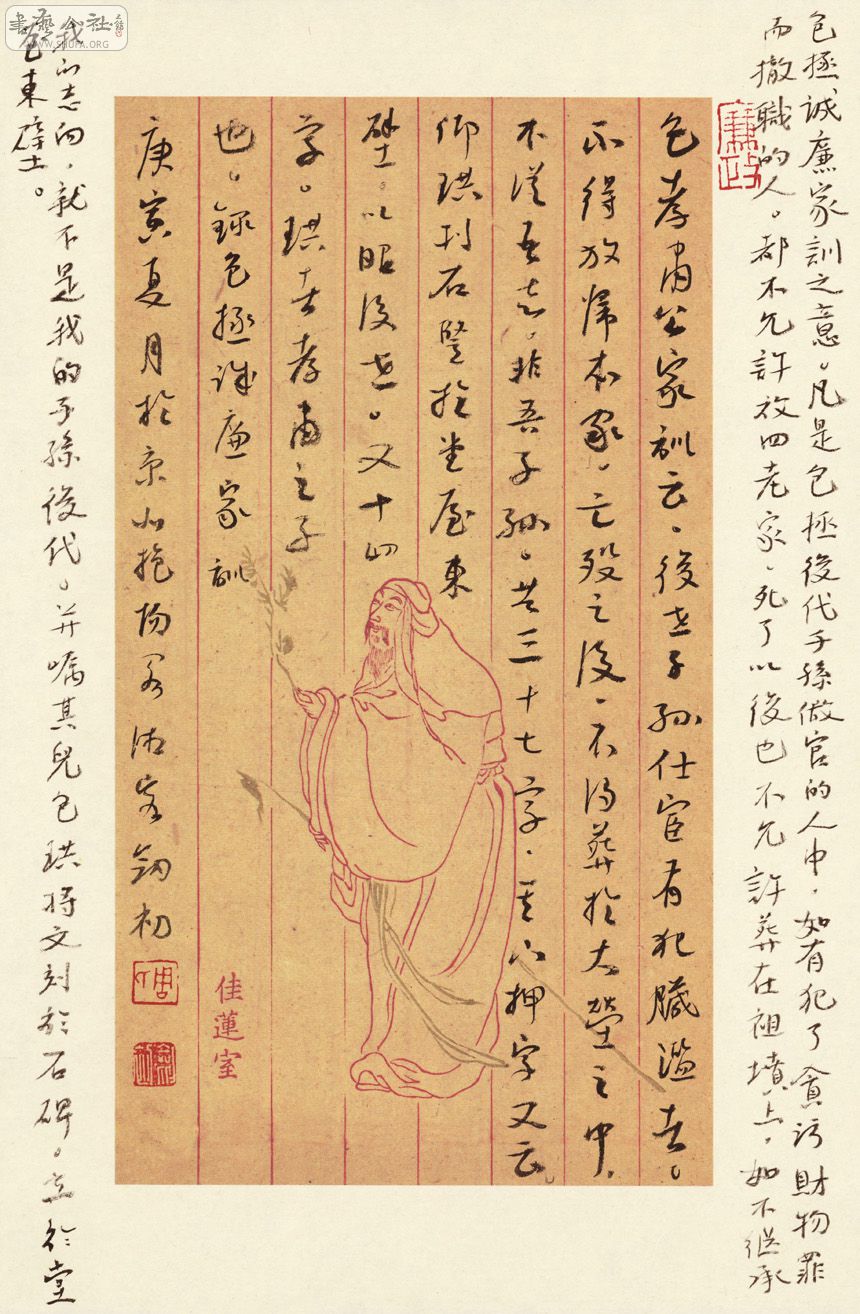 包拯誠廉家訓之意。凡是包拯後代子孫做官的人中，如有犯了貪污財物罪
而撤職的人。都不允許放回老家、死了以後也不允許葬在祖墳上，如不繼承
廉政
包孝肅公家訓云、後世子孫仕宦有犯臟濫者。
不得放歸本家、亡歿之後、不得葬於大塋之中，
不從吾志。非吾子孫。共三十七字、其下押字又云。
仰珙刊石豎於堂屋東
壁。以昭後世。又十四
字。珙者孝肅之子
也。錄包拯誠廉家訓
庚寅夏月於京北抱陽
劬初
佳蓮室
我的志向，就不是我的子孫後代。并嘱其兒包珙將文刻於石碑。立於堂
屋東壁上。
書藝公社
WWW.SHUFA.ORG